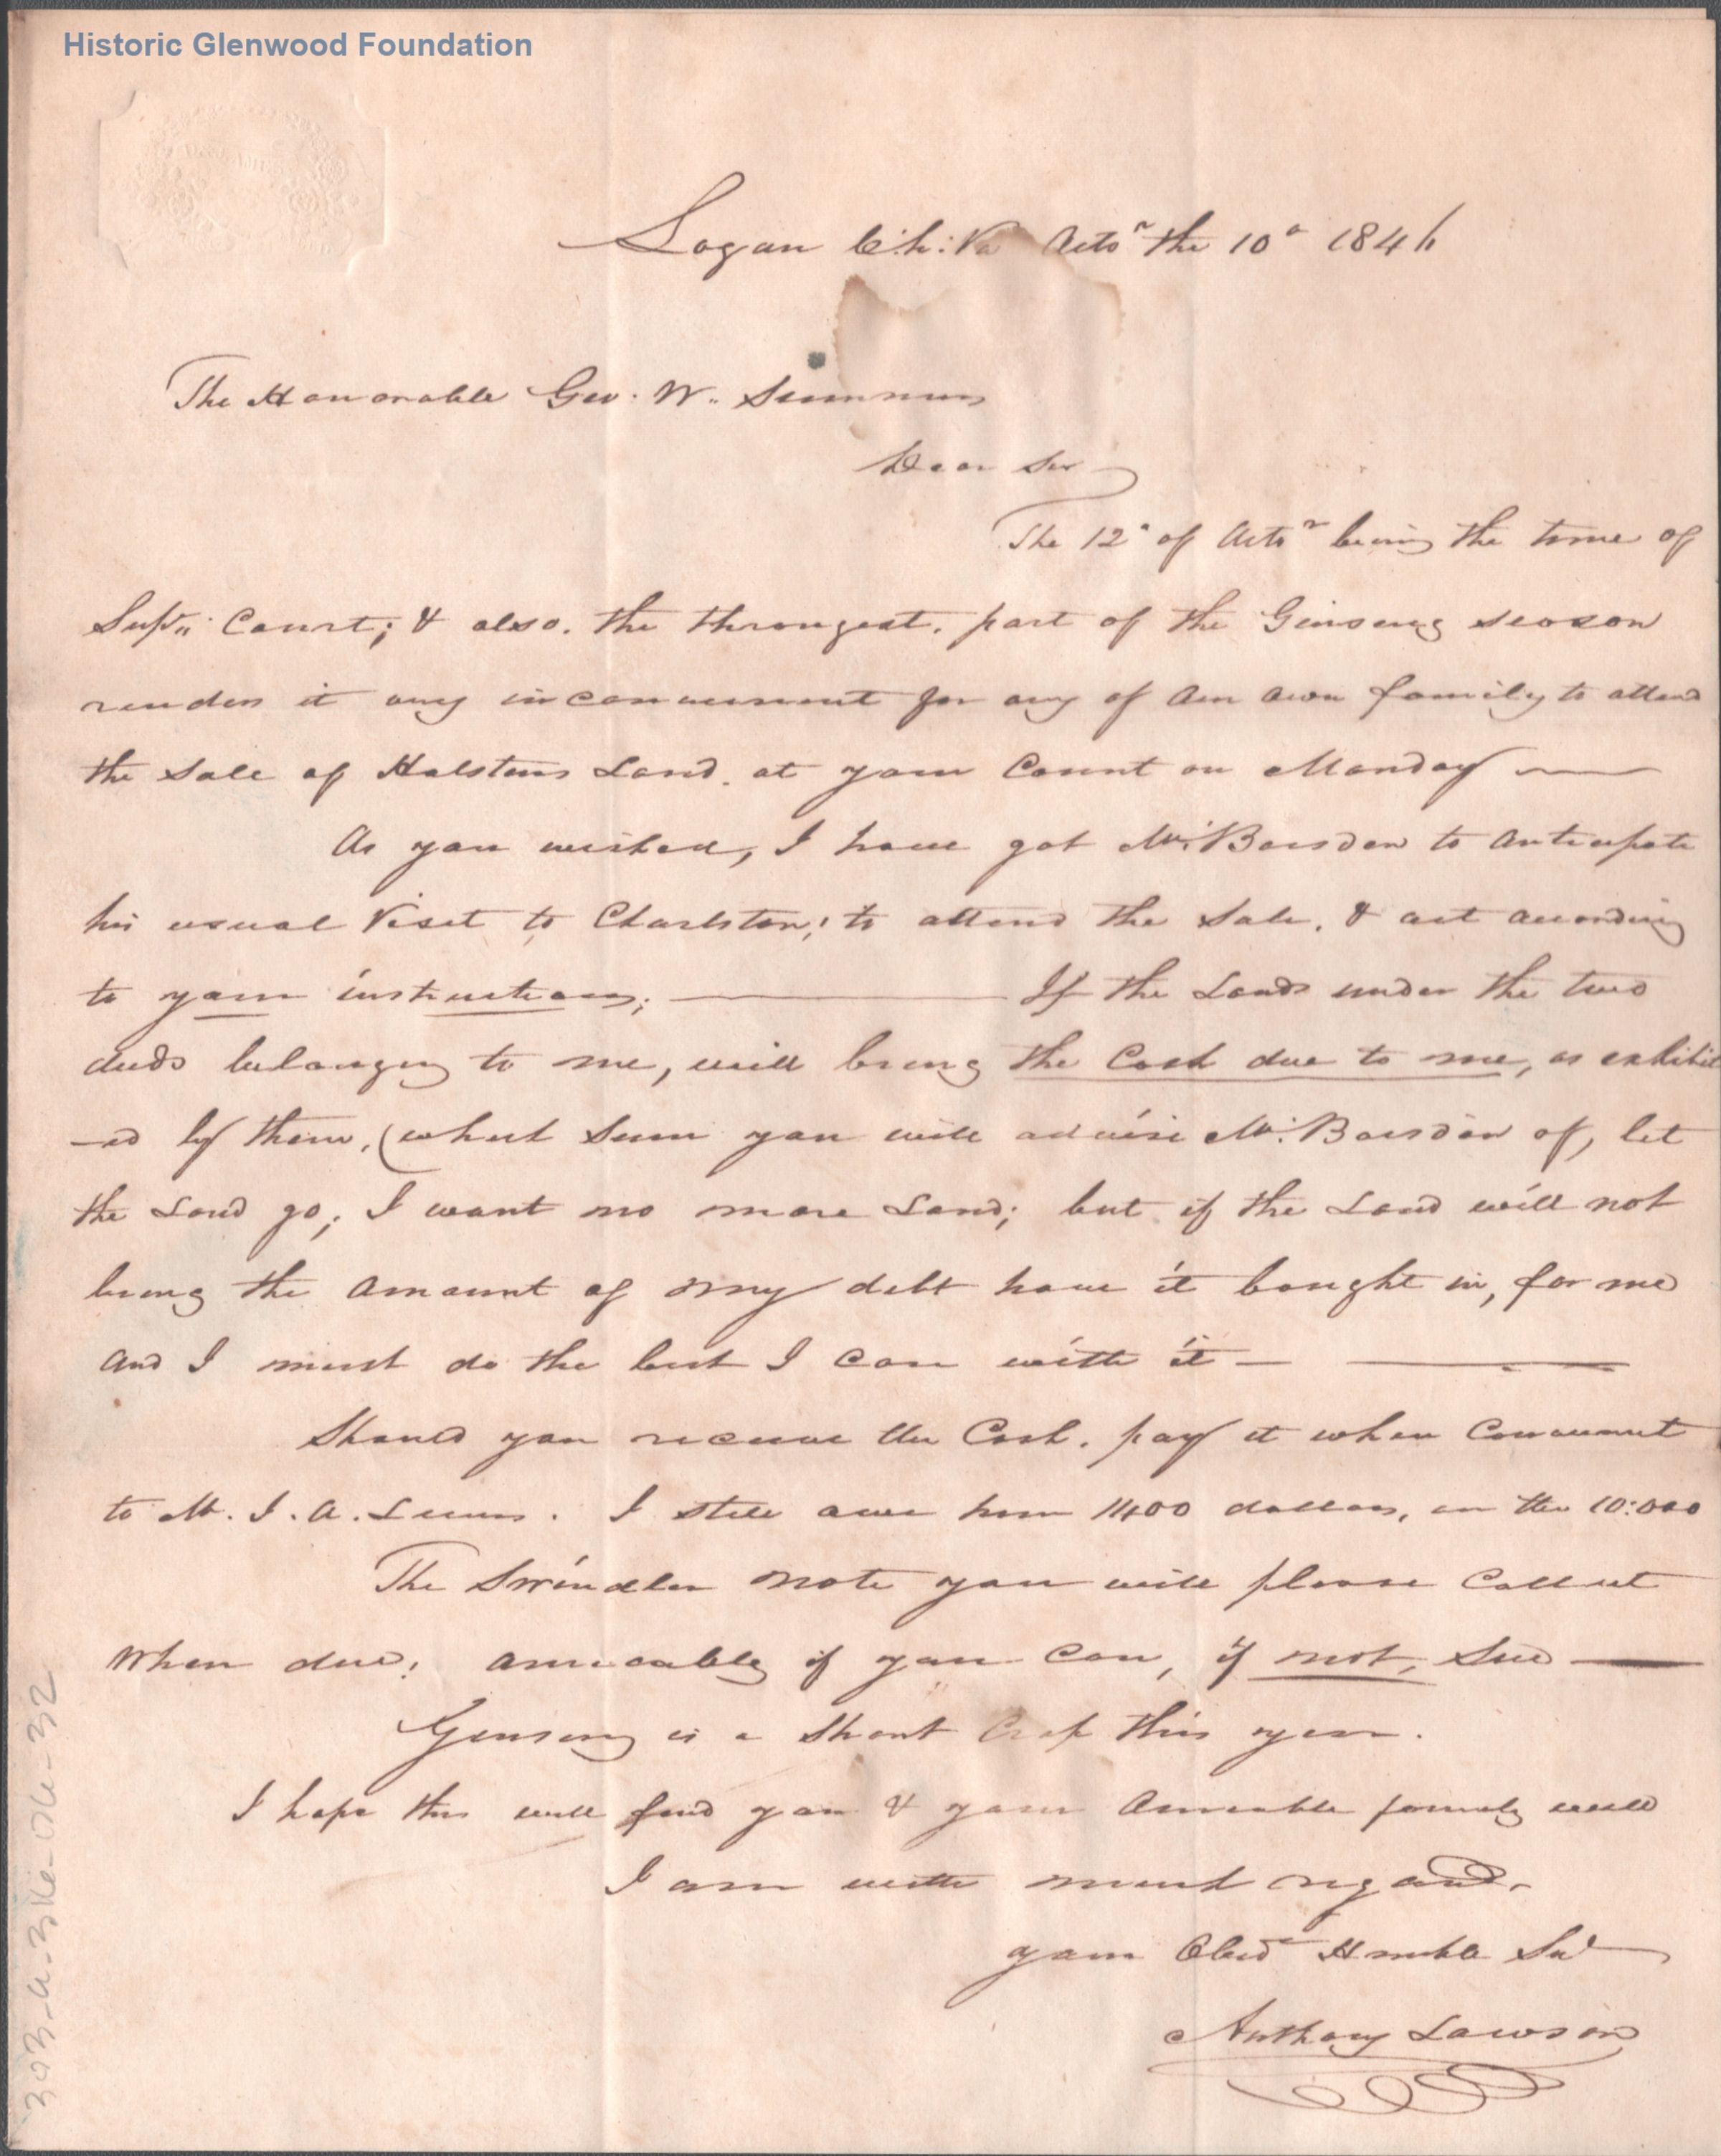 Historic Glenwood Foundation
Logan C.h: Va Octo^r the 10^th 1846
The Honorable Geo. W. Summers
Dear Sir
The 12^th of Octo^r being the time of
Sup^r Court; & also. the throngest. part of the Ginseng season
renders it very inconvenient for any of our own family to attend
the Sale of Halstens Land. at your Court on Monday —
As you wished, I have got Mr. Barsden to anticipate
his usual Visit to Charlston; to attend the Sale. & act according
to your instructions; — If the Lands under the two
deeds belonging to me, will bring the Cash due to me, as exhibit
-ed by them, (which Sum you will advise Mr. Barsden of, let
the Land go; I want no more Land; but if the Land will not
bring the amount of my debt have it bought in, for me
and I must do the best I can with it — —
Should you receive the Cash. pay it when Convenient
to Mr. J. A. Lewis. I still owe him 1400 dollars, on the 10:000
The Swindler note you will please Collect
When due; amicably if you can, if not, Sue —
Genseng is a Short Crop this year.
I hope this will find you & your Amiable family well
I am with much regard.
your Obed^t Humble Sv^t
Anthony Lawson
303-a-3Ke-06-32